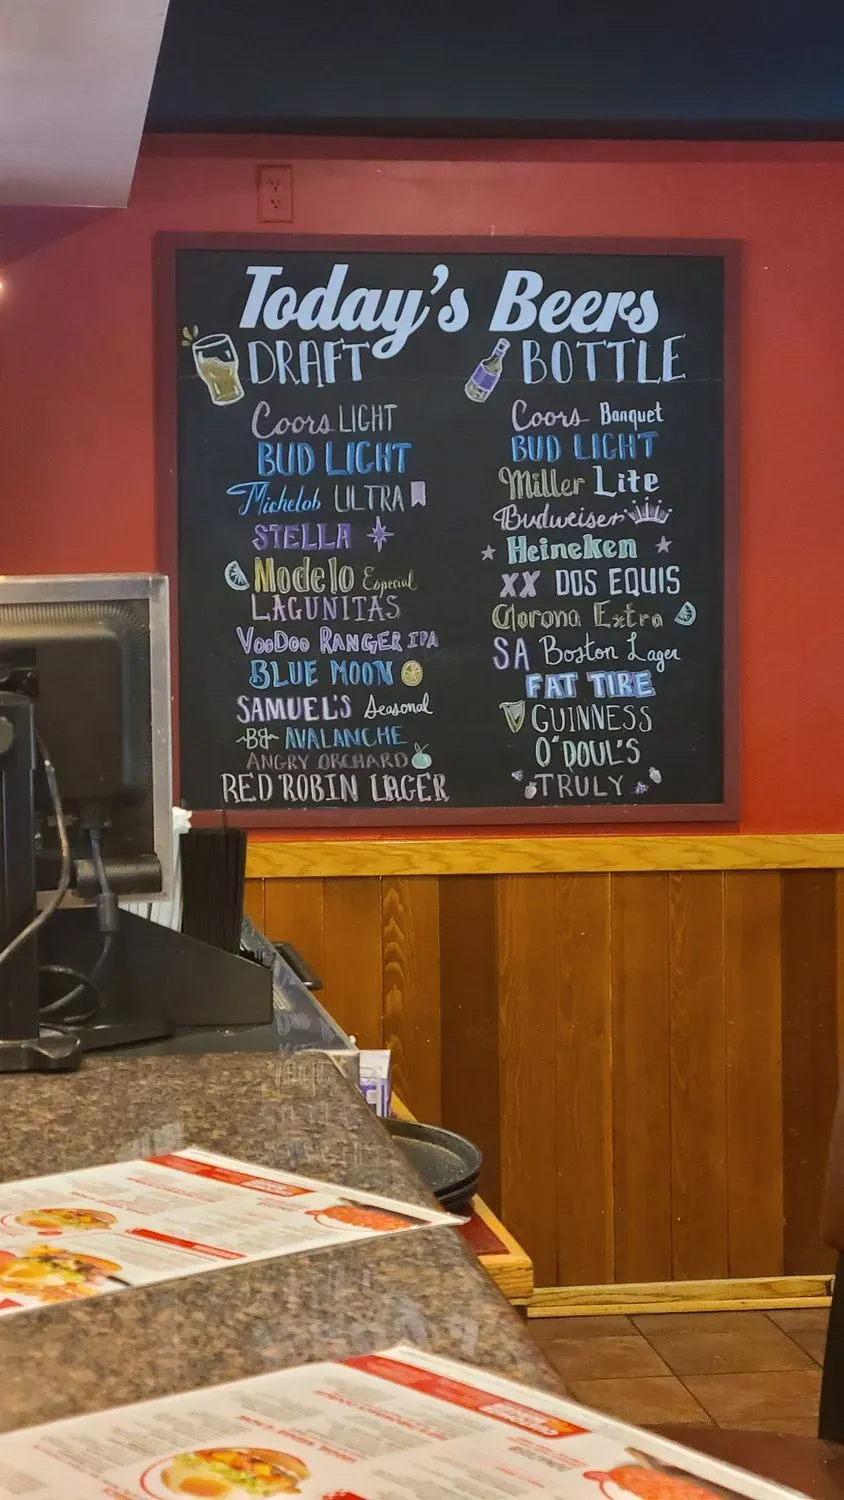 Today's Beers
DRAFT
Coors LIGHT
BUD LIGHT
Michelob ULTRA
STELLA
Modelo Especial
LAGUNITAS
VOODOO RANGER IPA
BLUE MOON
SAMUEL'S Seasonal
BB AVALANCHE
ANGRY ORCHARD
RED ROBIN LAGER
BOTTLE
Coors Banquet
BUD LIGHT
Miller Lite
Budweiser
Heineken
XX DOS EQUIS
Corona Extra
SA Boston Lager
FAT TIRE
GUINNESS
O'DOUL'S
TRULY